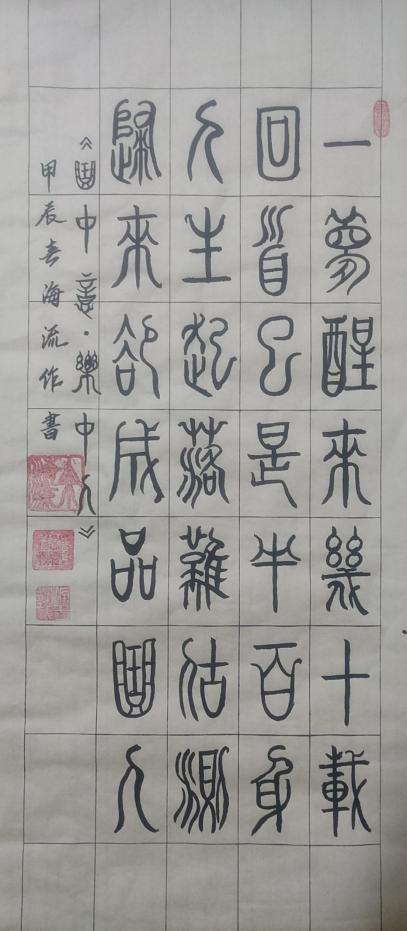 一夢醒來幾十載
回首已是半百身
人生起落難估測
歸來卻成品圖人
《圖中意·樂中人》
甲辰春海流作書